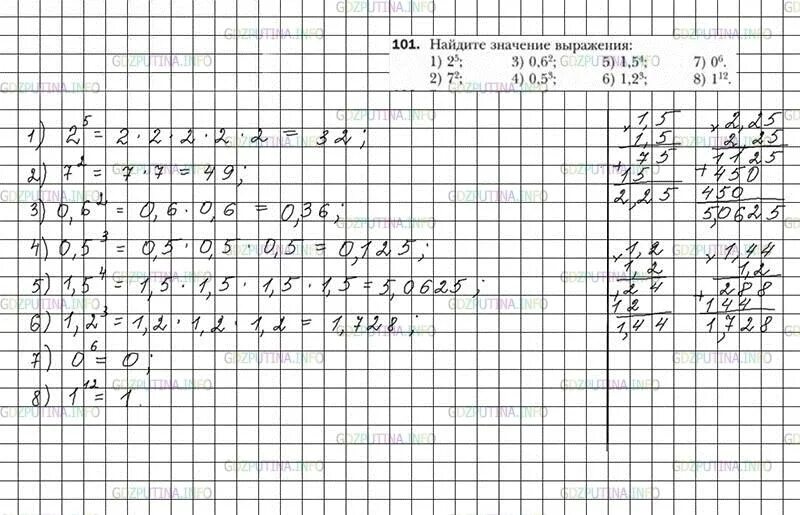 101. Найдите значение выражения:
1) 2⁵; 3) 0,6²; 5) 1,5⁴; 7) 0⁶.
2) 7²; 4) 0,5³; 6) 1,2³; 8) 1¹².
1) 2⁵ = 2 · 2 · 2 · 2 · 2 = 32;
2) 7² = 7 · 7 = 49;
3) 0,6² = 0,6 · 0,6 = 0,36;
4) 0,5³ = 0,5 · 0,5 · 0,5 = 0,125;
5) 1,5⁴ = 1,5 · 1,5 · 1,5 · 1,5 = 5,0625;
6) 1,2³ = 1,2 · 1,2 · 1,2 = 1,728;
7) 0⁶ = 0;
8) 1¹² = 1.
1,5
1,5
+ 75
15
2,25
2,25
2,25
1125
+ 450
450
5,0625
1,2
1,2
24
12
1,44
1,44
1,2
+ 288
144
1,728
GDZPUTINA.INFO